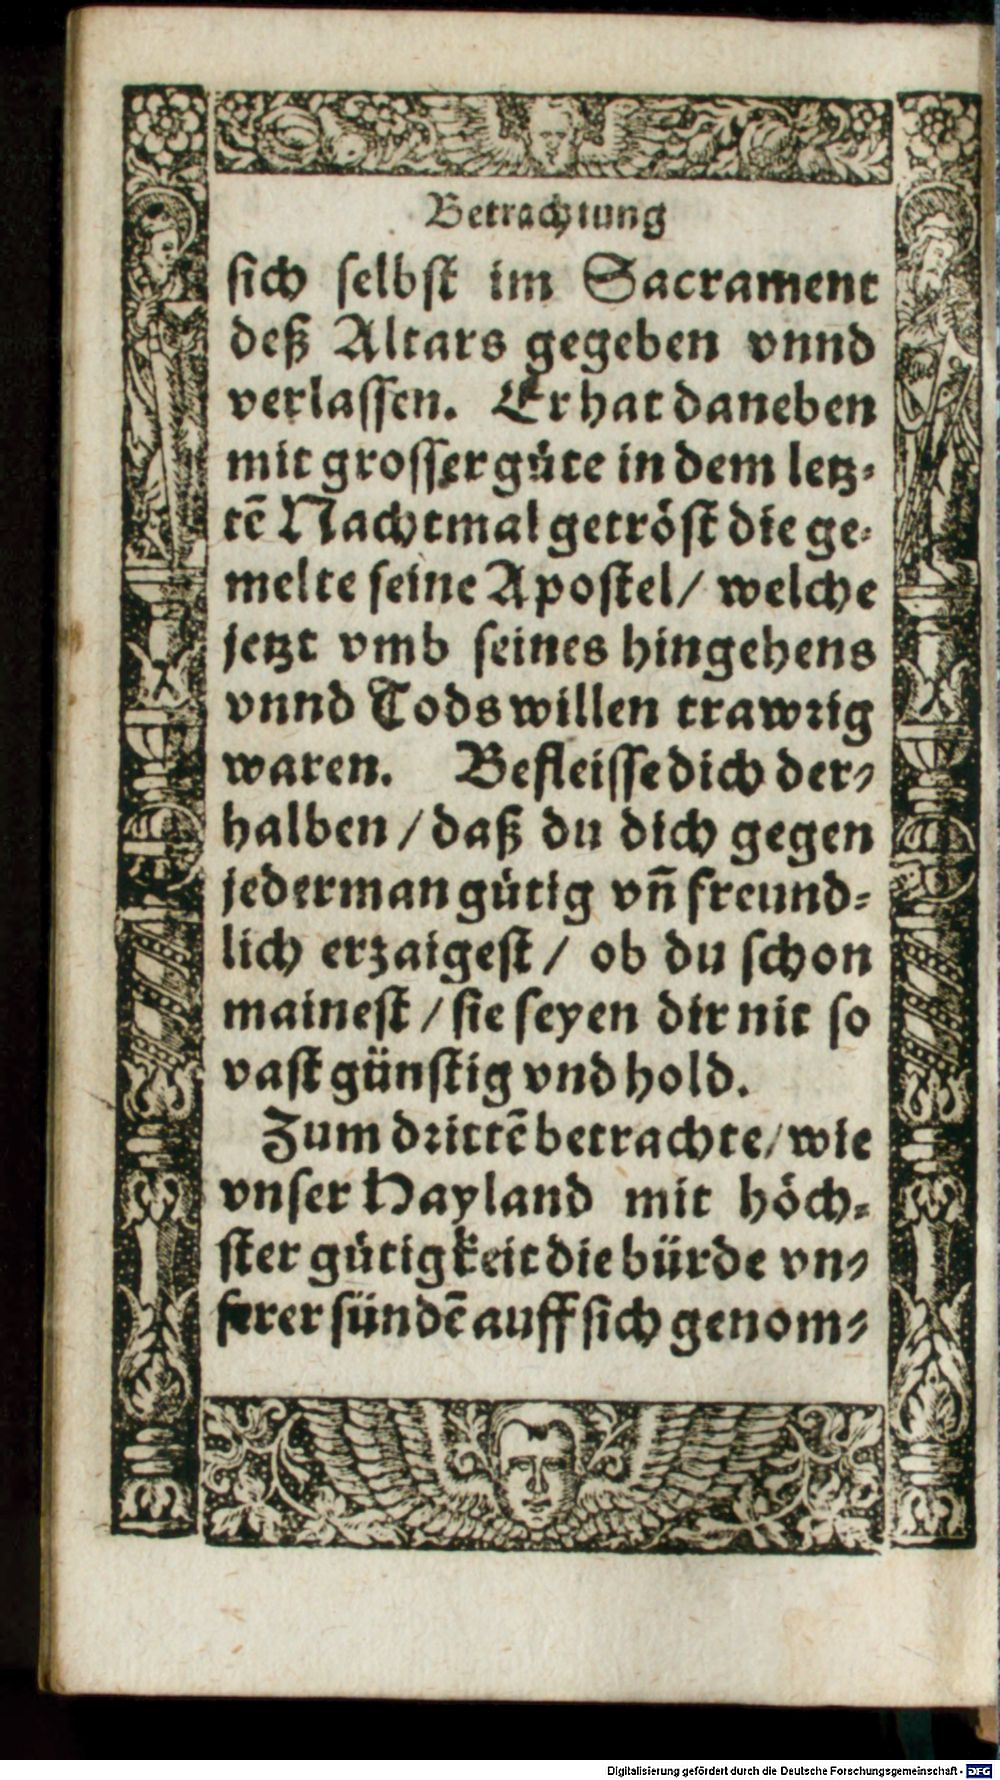 Betrachtung
sich selbst im Sacrament
deß Altars gegeben vnnd
verlassen. Er hat daneben
mit grosser gůte in dem letz-
tē Nachtmal getröst die ge-
melte seine Apostel/ welche
jetzt vmb seines hingehens
vnnd Tods willen trawrig
waren. Befleisse dich der-
halben / daß du dich gegen
jederman gůtig vñ freund-
lich erzaigest / ob du schon
mainest / sie seyen dir nit so
vast günstig vnd hold.
Zum drittē betrachte/ wie
vnser Hayland mit höch-
ster gůtigkeit die bürde vn-
serer sündē auff sich genom-
Digitalisierung gefördert durch die Deutsche Forschungsgemeinschaft - DFG